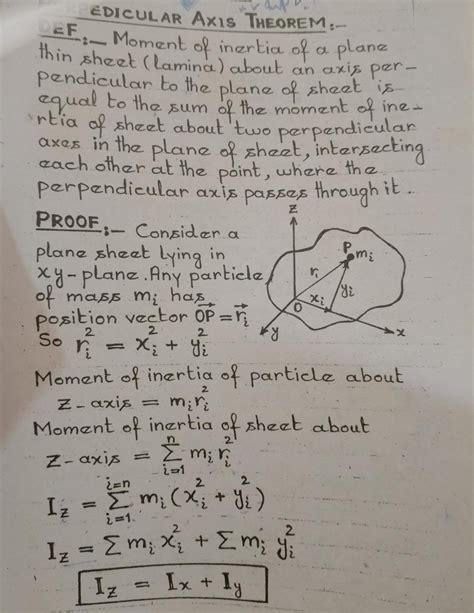 PEDICULAR AXIS THEOREM:-
DEF:- Moment of inertia of a plane
thin sheet (lamina) about an axis per-
pendicular to the plane of sheet is
equal to the sum of the moment of ine-
rtia of sheet about two perpendicular
axes in the plane of sheet, intersecting
each other at the point, where the
perpendicular axis passes through it.
PROOF:- Consider a
plane sheet lying in
xy-plane. Any particle
of mass mᵢ has
position vector O⃗P⃗ = r⃗ᵢ
So rᵢ² = xᵢ² + yᵢ²
z
P
mᵢ
rᵢ
yᵢ
xᵢ
O
x
y
Moment of inertia of particle about
z-axis = mᵢrᵢ²
Moment of inertia of sheet about
z-axis = ∑ⁿᵢ₌₁ mᵢ rᵢ²
I_z = ∑ⁱ⁼ⁿᵢ₌₁ mᵢ (xᵢ² + yᵢ²)
I_z = ∑ mᵢ xᵢ² + ∑ mᵢ yᵢ²
I_z = Iₓ + I_y